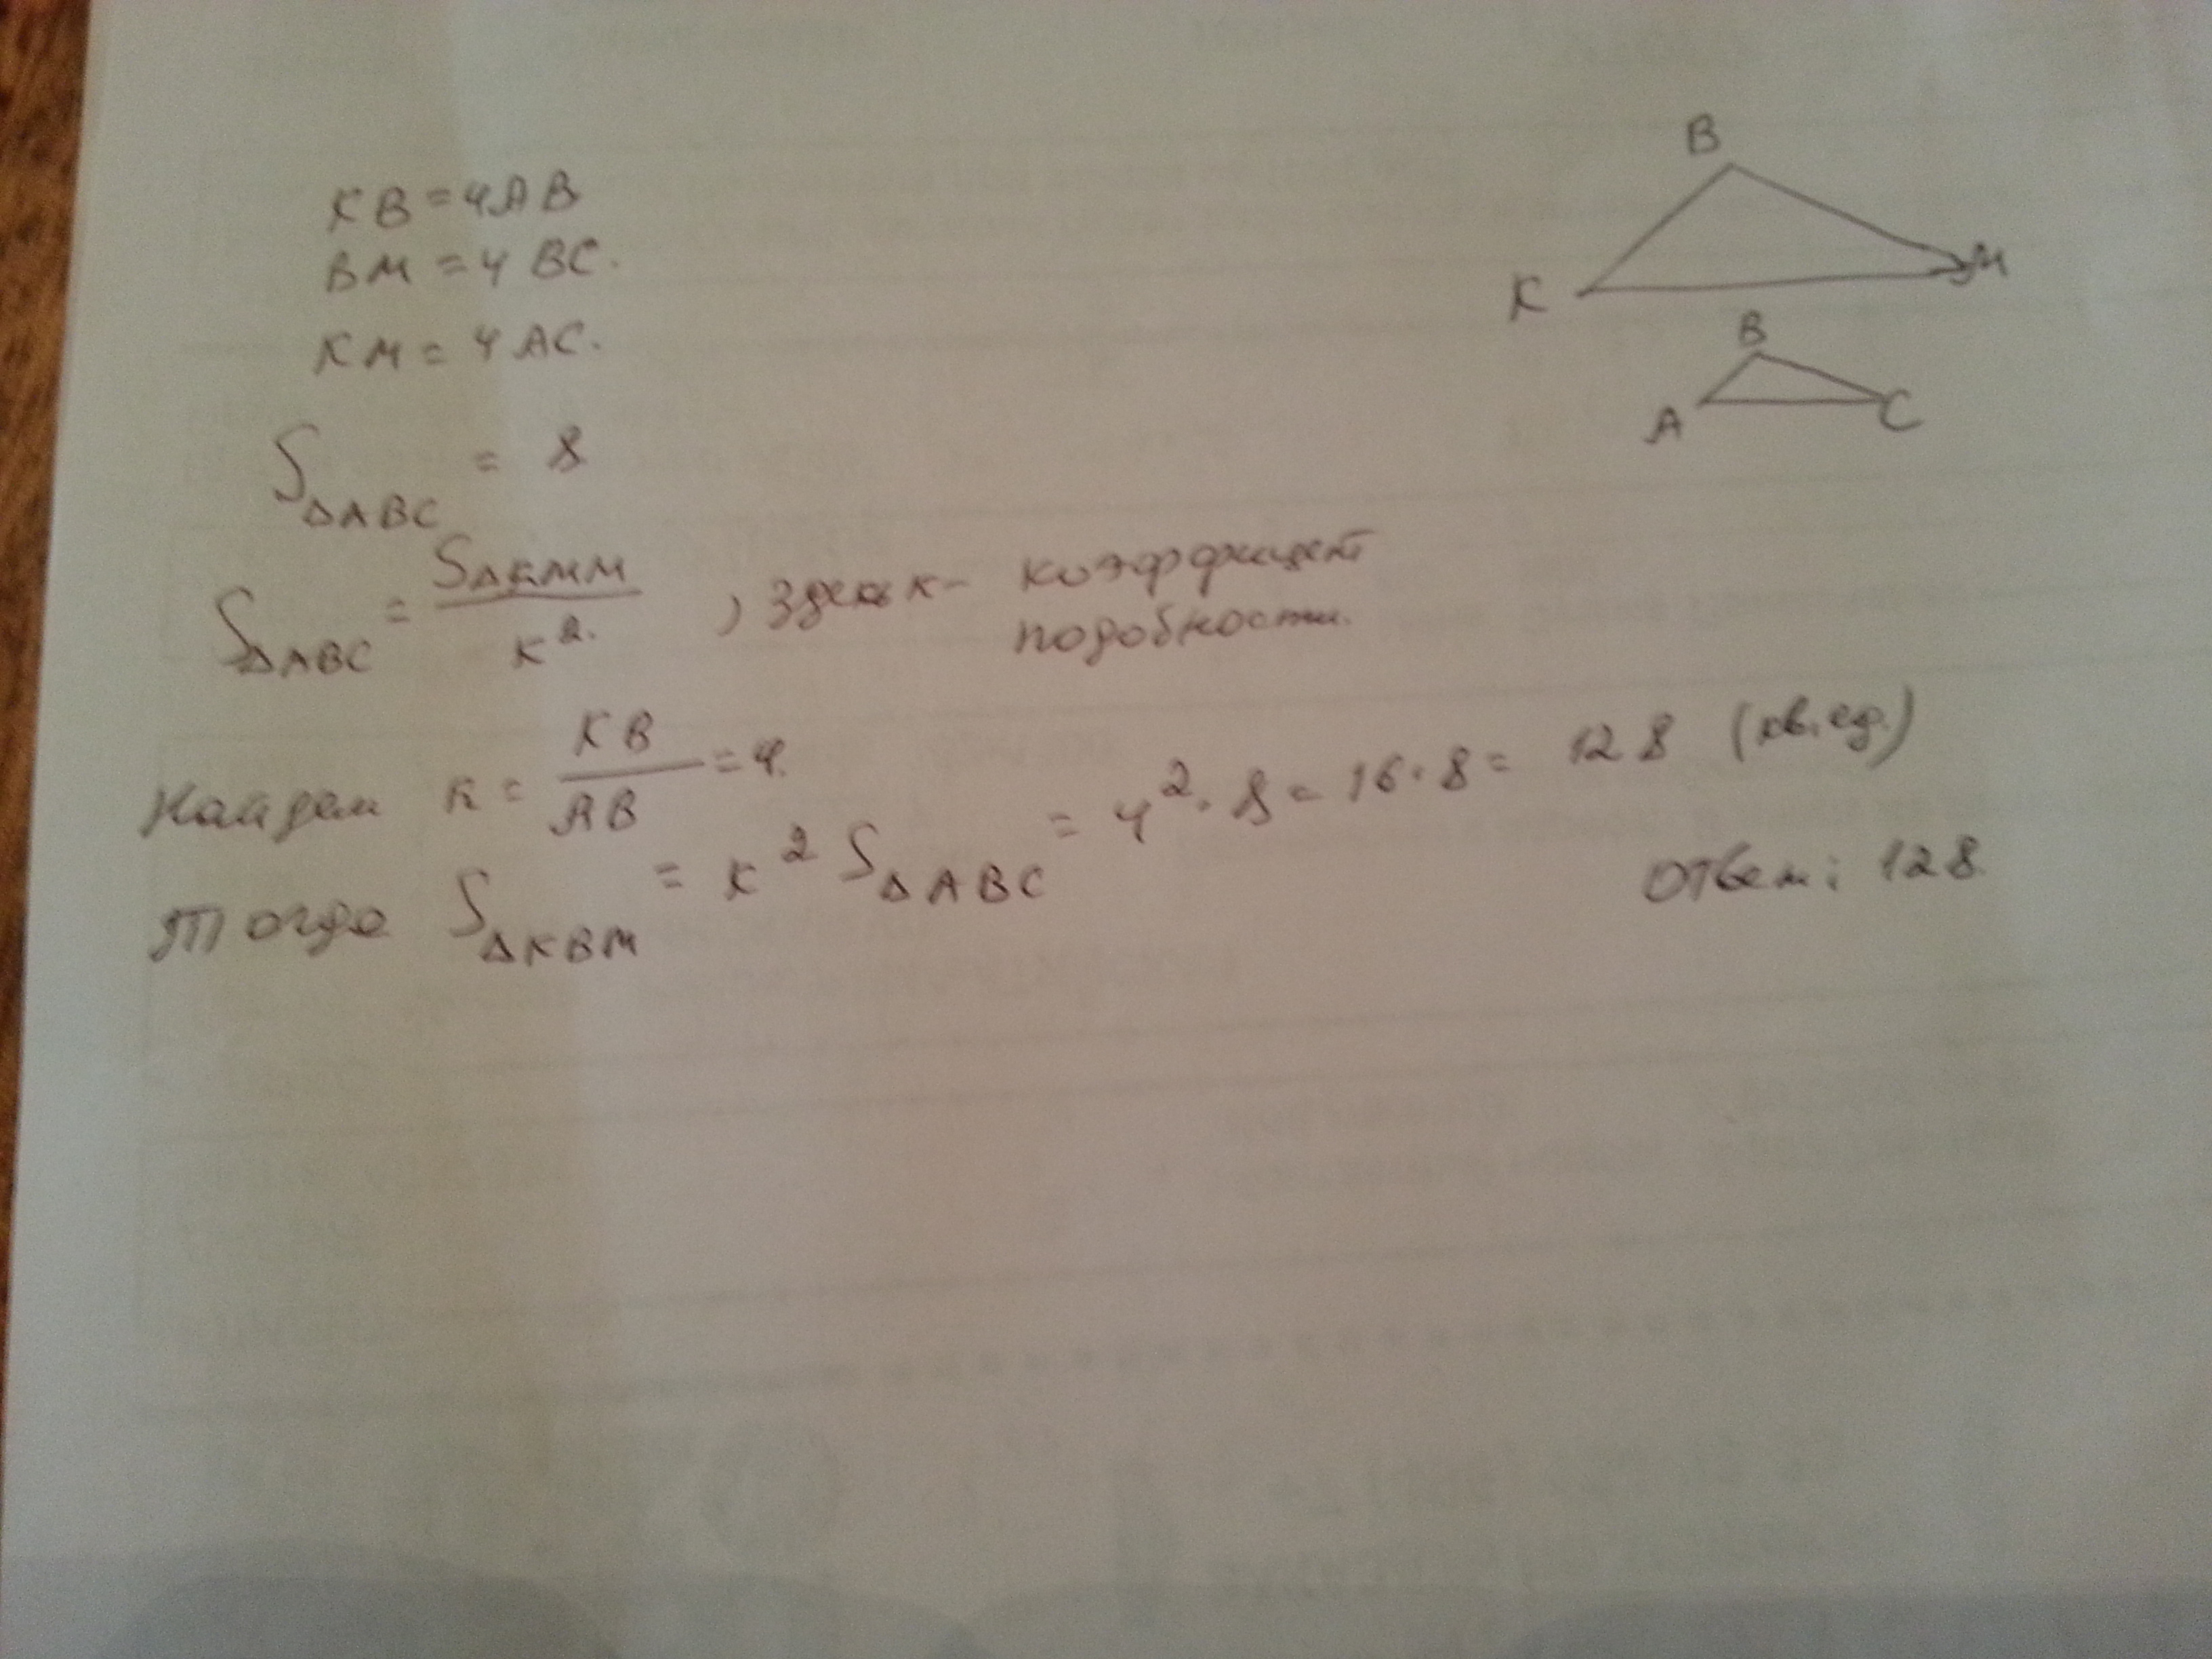 KB = 4AB
BM = 4 BC.
KM = 4 AC.
B
K
M
B
A
C
S△ABC = 8
S△ABC = S△KMM / K². , здесь к - коэффицент
подобности.
Найдем к = KB / AB = 4.
Тогда S△KBM = K² S△ABC = 4² · 8 = 16 · 8 = 128 (кв. ед.)
Ответ: 128